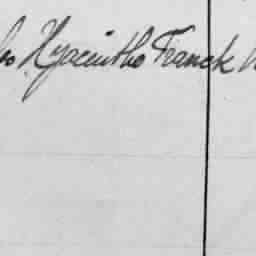 Hyacintho Franck